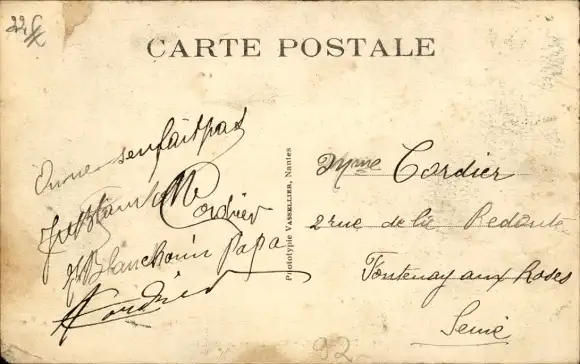 CARTE POSTALE
on ne s'en fait pas
M Cordier
Blanchouin Papa
Cordier
Phototypie VASSELLIER, Nantes
Mme Cordier
2 rue de la Redoute
Fontenay aux Roses
Seine
92